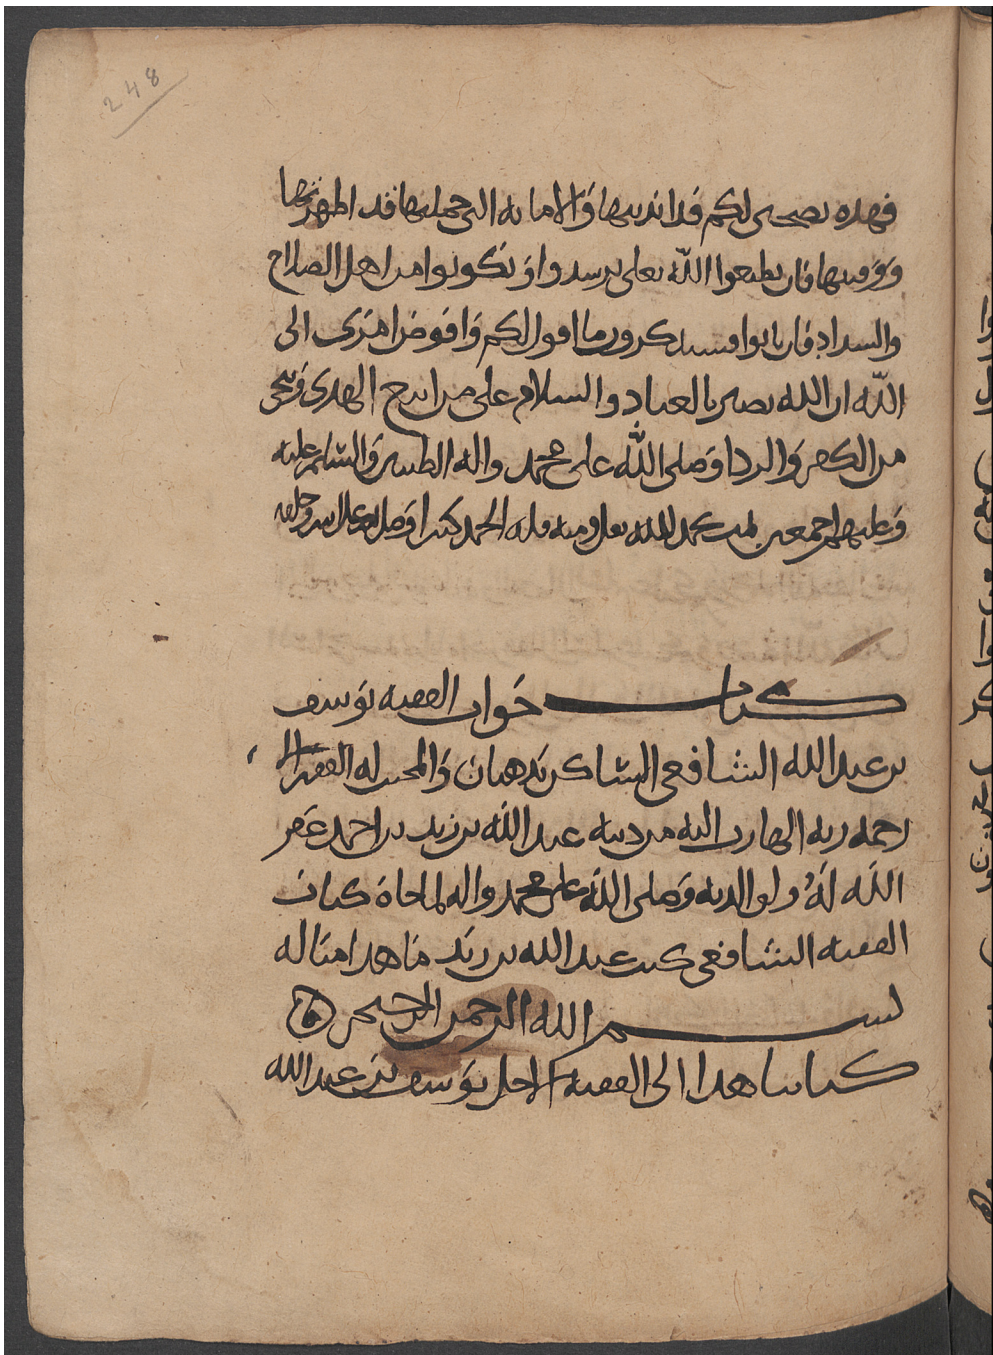 248
فهذه نصيحتي لكم قد اديتها والامانة التي حملتها قد اظهرتها
ووفيتها فان تطيعوا الله تعلى ترشدوا وتكونوا من اهل الصلاح
والسداد فان تابوا فستذكرون ما اقول لكم وافوض امري الى
الله ان الله بصير بالعباد والسلام على من اتبع الهدى
من الكفر والردا وصلى الله على محمد واله الطيبين والسلام عليه
وعليهم اجمعين تمت بحمد الله ومنه فله الحمد كثيرا
كتاب جواب الفقيه يوسف
بن عبد الله الشافعي الساكن بذهبان والمجيب له الفقير الى
رحمة ربه الهارب اليه من ذنبه عبد الله بن زيد بن احمد غفر
الله له ولوالديه وصلى الله على محمد واله لما جاه كتاب
الفقيه الشافعي كتب عبد الله بن زيد ما هذا مثاله
بسم الله الرحمن الرحيم
كتابنا هذا الى الفقيه الاجل يوسف بن عبد الله